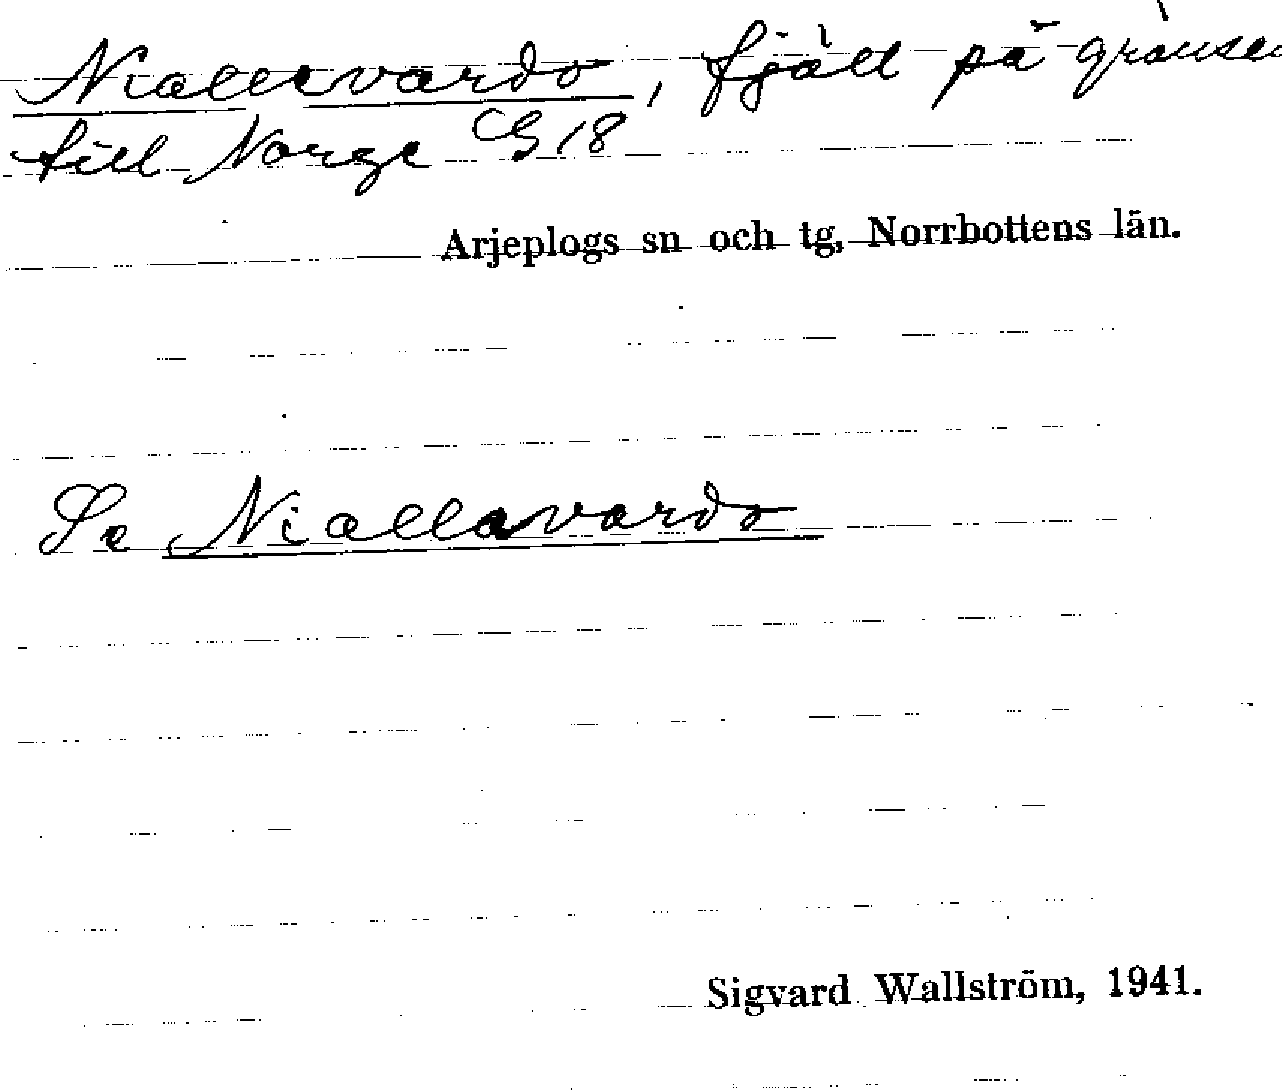 Niallevardo, fjäll på gränsen
till Norge G 18
Arjeplogs sn och tg, Norrbottens län.
Se Niallavardo
Sigvard Wallström, 1941.